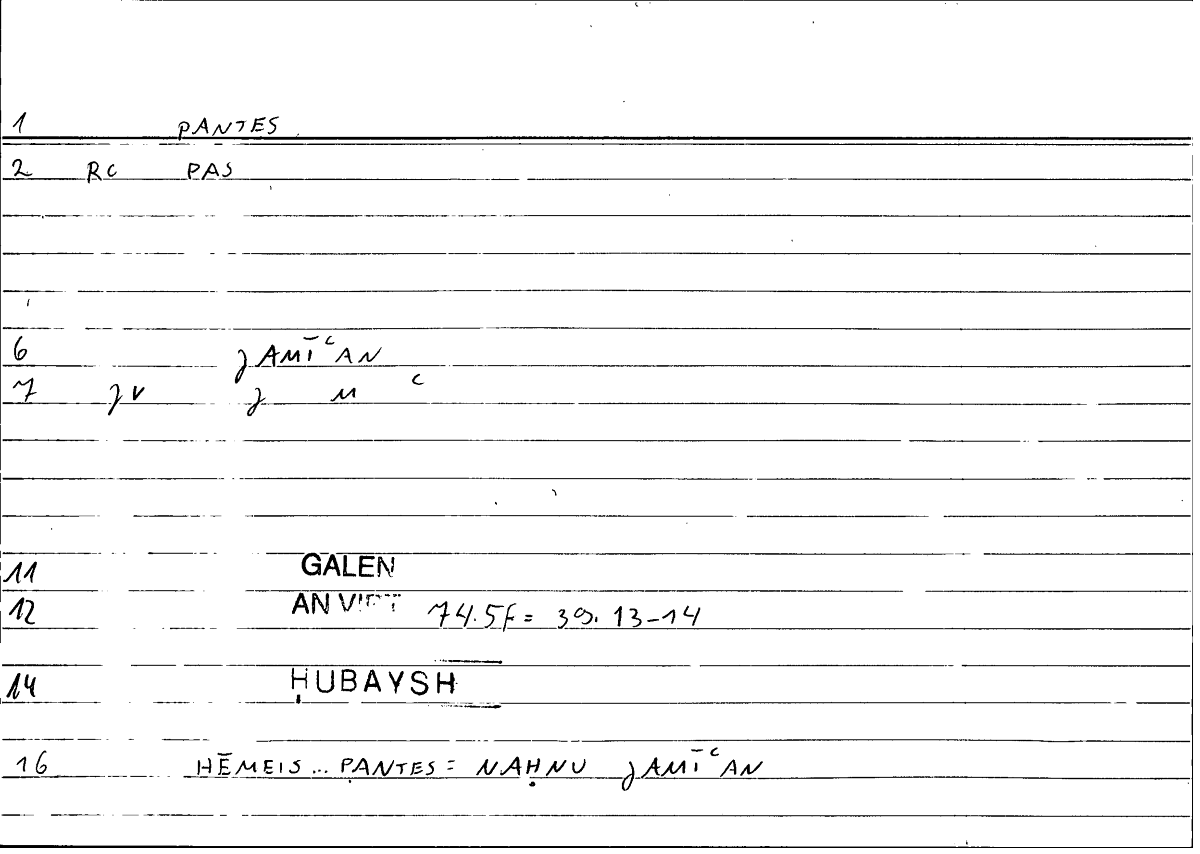 1 PANTES
2 RC PAS
6 ȷAMĪʿAN
7 ȷV ȷ M ʿ
11 GALEN
12 AN VIRT 74.5f = 39.13-14
14 ḤUBAYSH
16 HĒMEIS... PANTES = NAḤNU ȷAMĪʿAN